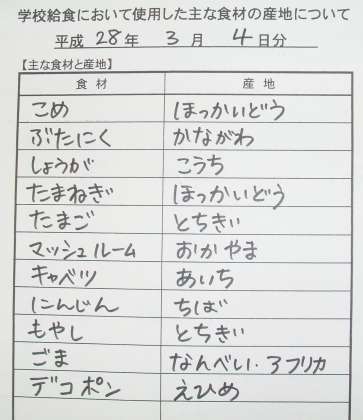 学校給食において使用した主な食材の産地について
平成 28 年 3 月 4 日分
【主な食材と産地】
食材 産地
こめ ほっかいどう
ぶたにく かながわ
しょうが こうち
たまねぎ ほっかいどう
たまご とちぎ
マッシュルーム おかやま
キャベツ あいち
にんじん ちば
もやし とちぎ
ごま なんべい・アフリカ
デコポン えひめ